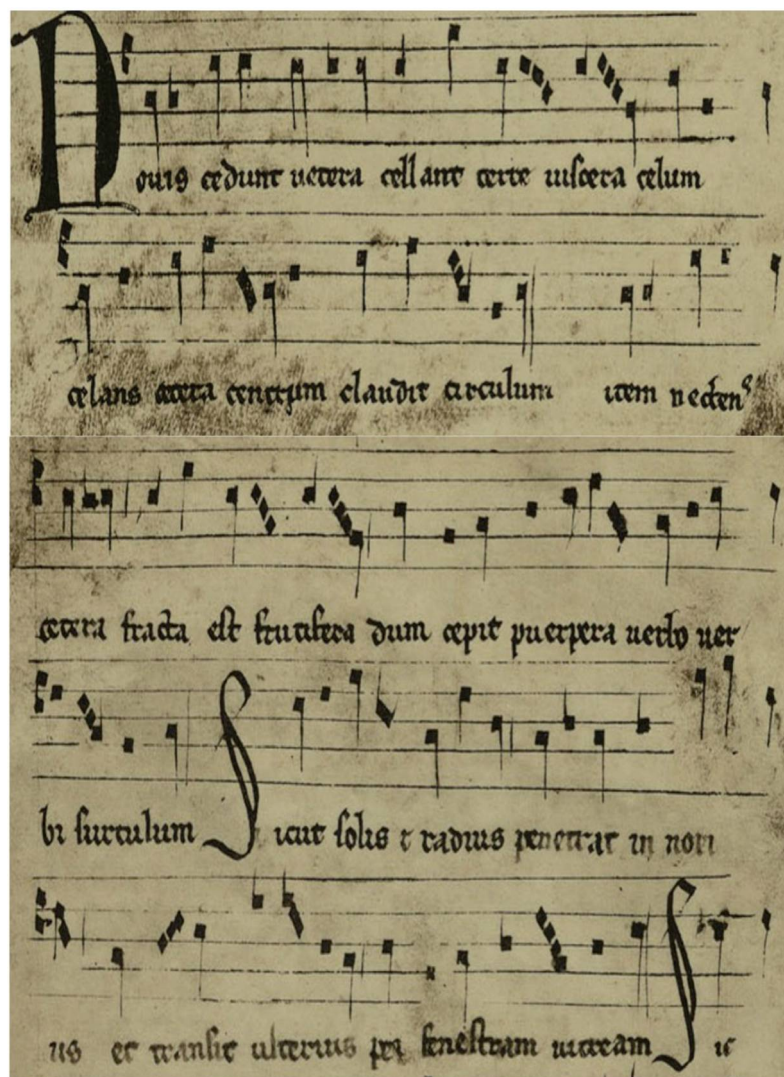 Nouis cedunt uetera cessant certe uiscera celum
celans cetera centrum claudit circulum item necten
cetera fracta est fructifera dum cepit puerpera uerbo uer
bi surculum Sicut solis radius penetrat in noti
us et transit ulterius per fenestram uitream Sic